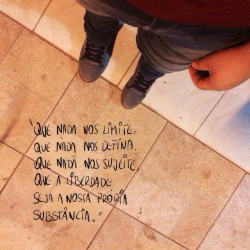 "QUE NADA NOS LIMITE,
QUE NADA NOS DEFINA.
QUE NADA NOS SUJEITE.
QUE A LIBERDADE
SEJA A NOSSA PRÓPRIA
SUBSTÂNCIA."